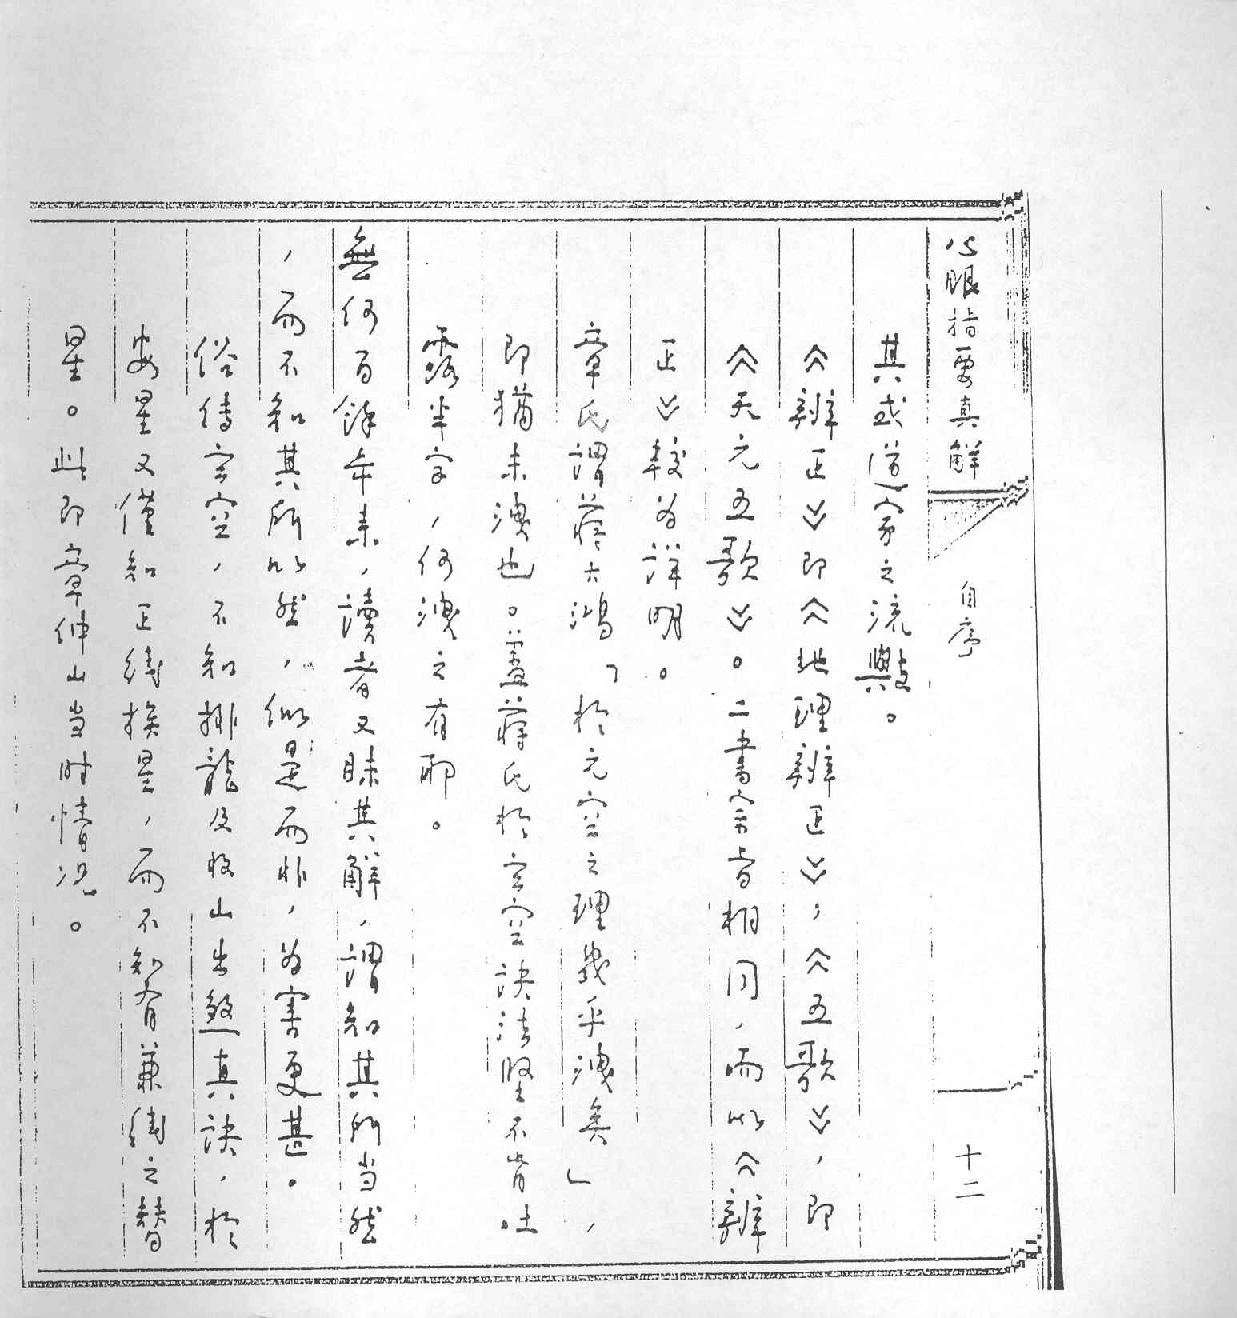 心眼指要真解
自序
十二
其或道家之流歟。
《辨正》即《地理辨正》,《五歌》,即
《天元五歌》。二書宗旨相同,而以《辨
正》較为詳明。
章氏謂蔣大鴻「於元空之理幾乎洩矣」,
即猶未洩也。蓋蔣氏於玄空訣法堅不肯吐
露半字,何洩之有耶。
無何百餘年来,讀者又昧其解,謂知其所当然
,而不知其所以然,似是而非,为害更甚。
俗傳玄空,不知排龍及收山出煞真訣,於
安星又僅知正线挨星,而不知有兼线之替
星。此即章仲山当时情况。